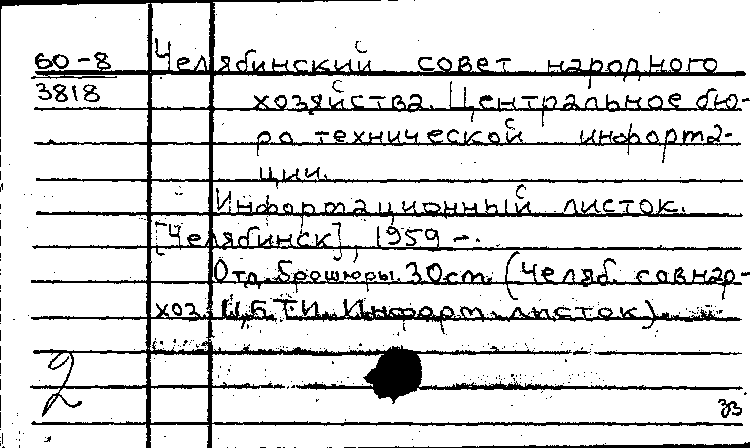 60-8 Челябинский совет народного
3818 хозяйства. Центральное бю-
ро технической информа-
ции.
Информационный листок.
[Челябинск], 1959 -.
Отд. брошюры. 30см. (Челяб. совнар-
хоз. ЦБТИ. Информ. листок).
2